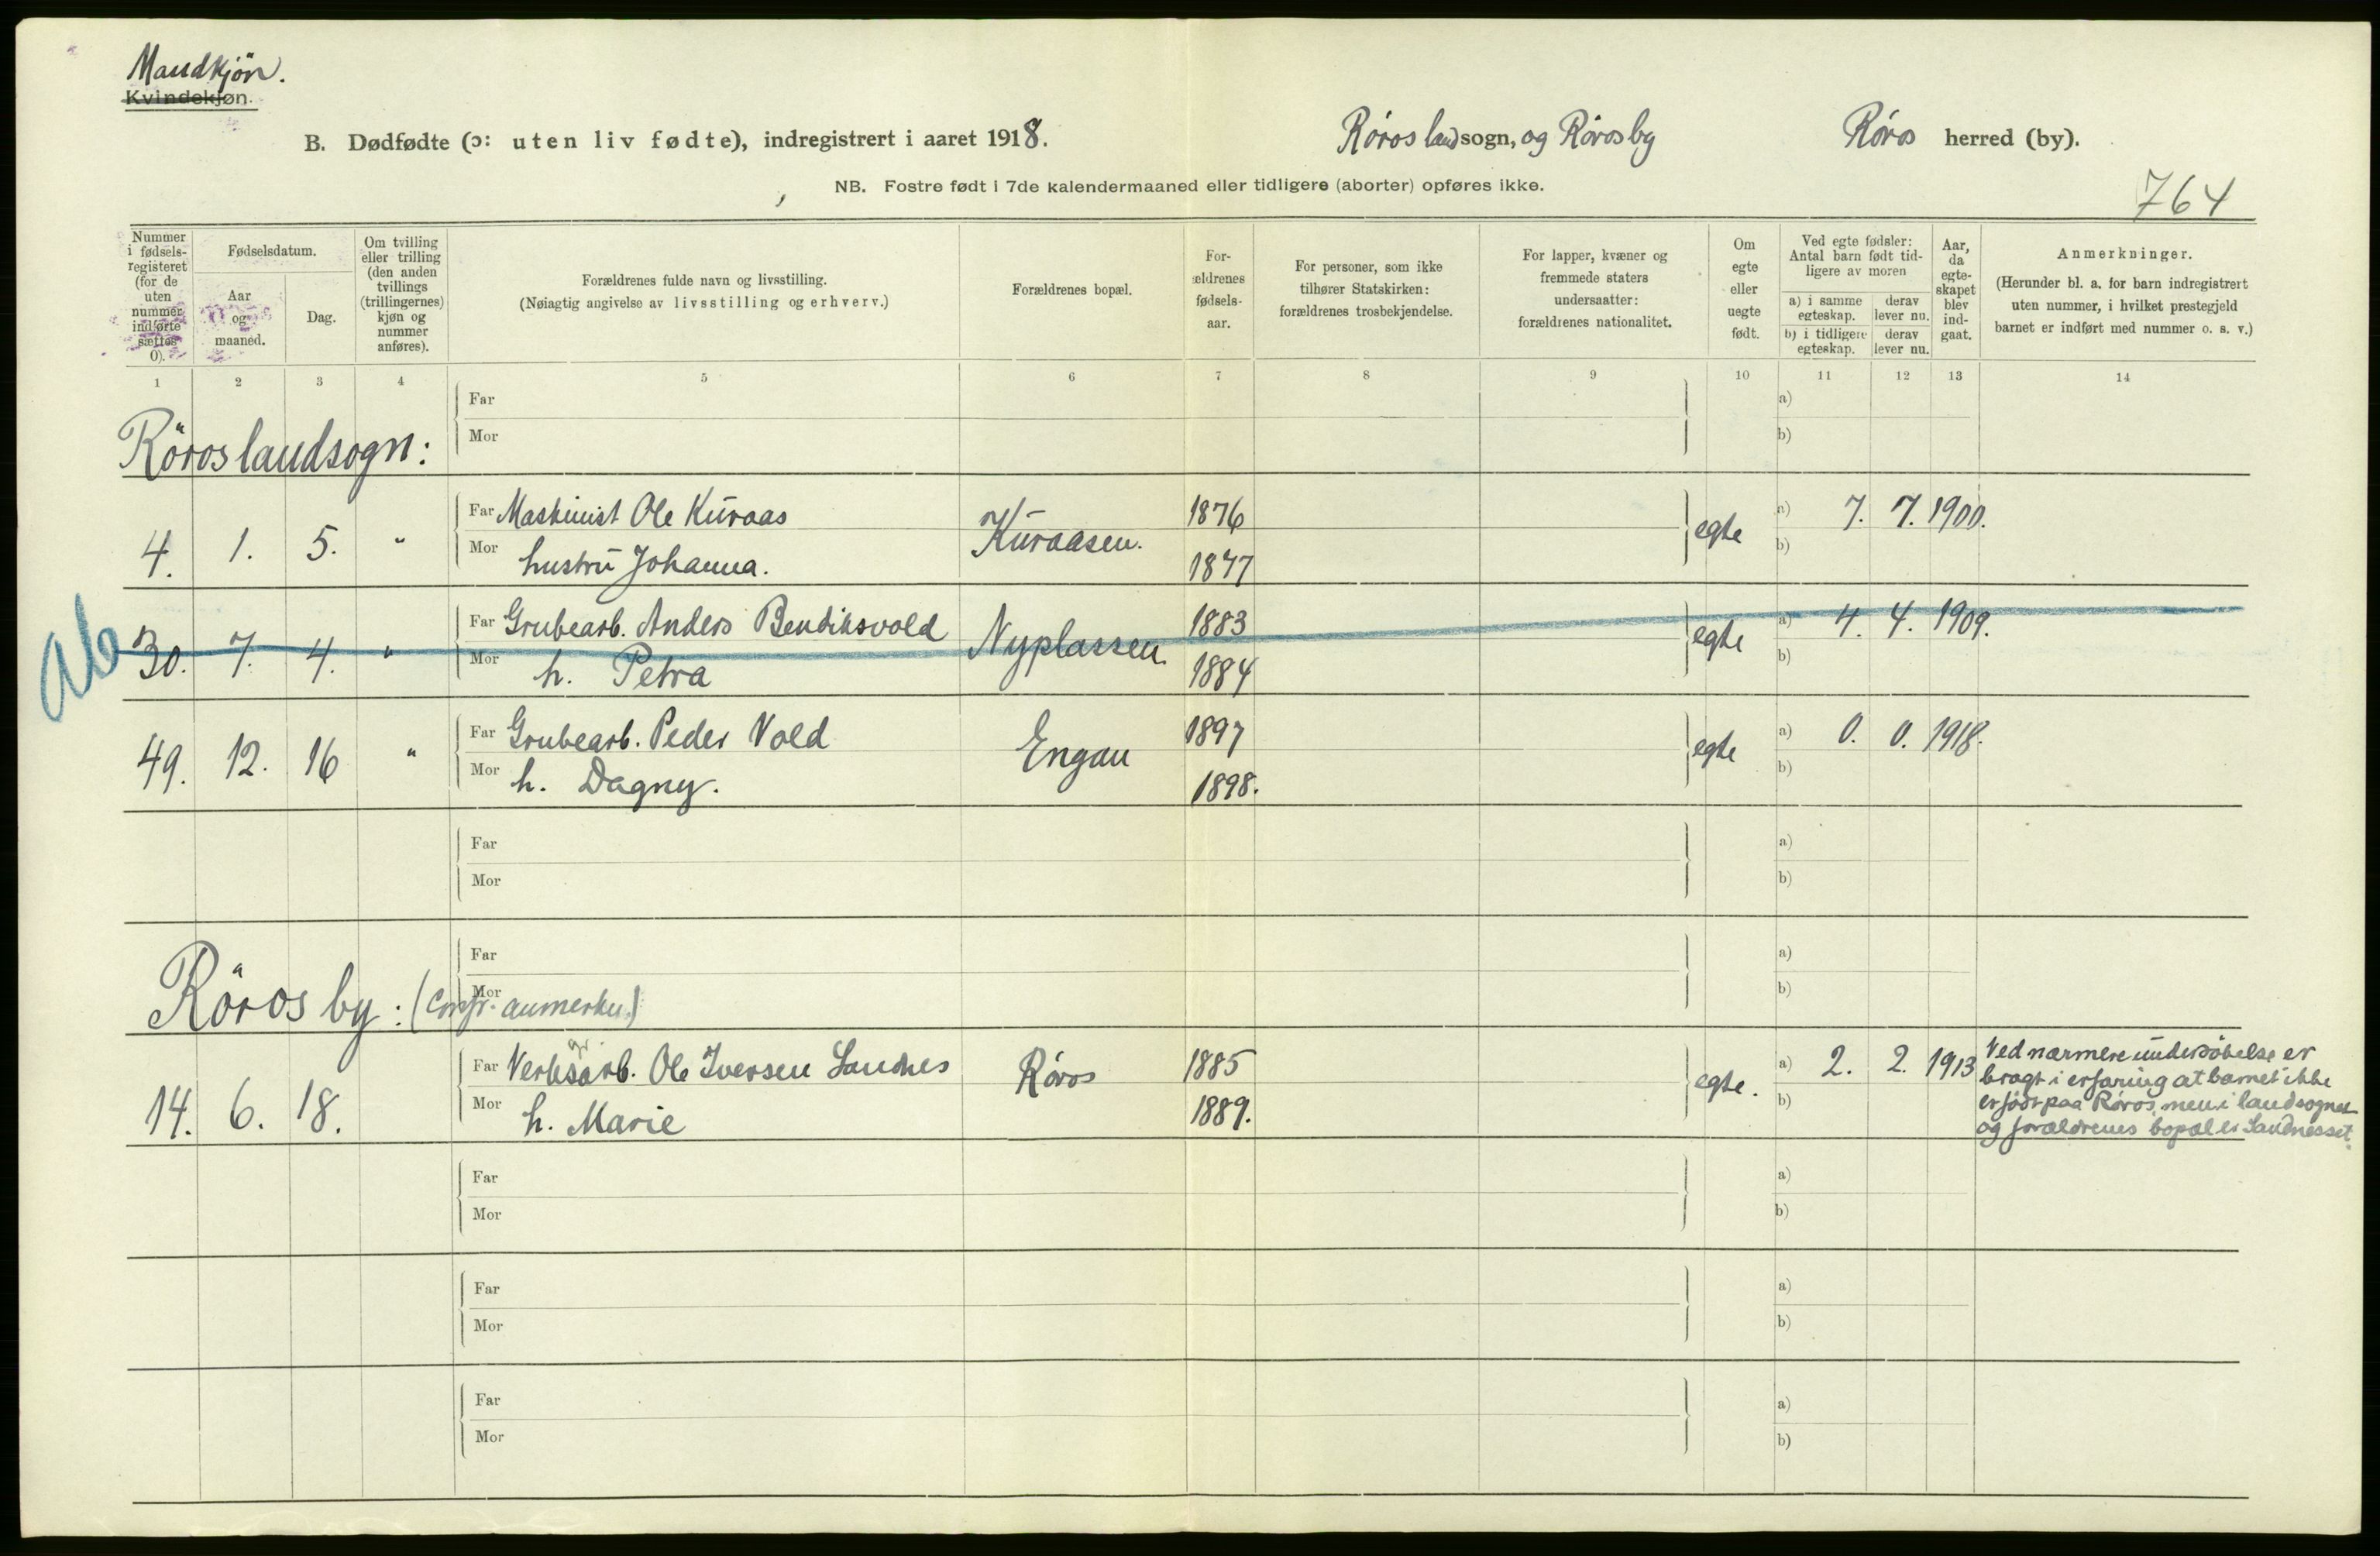 Mandkjön.
Kvindekjøn.
B. Dødfødte (ɔ: uten liv fødte), indregistrert i aaret 1918.
Röros landsogn, og Röros by
Röros herred (by).
NB. Fostre født i 7de kalendermaaned eller tidligere (aborter) opføres ikke.
764
Nummer i fødsels-registeret (for de uten nummer indførte sættes 0).
Fødselsdatum.
Aar og maaned.
Dag.
Om tvilling eller trilling (den anden tvillings (trillingernes) kjøn og nummer anføres).
Forældrenes fulde navn og livsstilling.
(Nøiagtig angivelse av livsstilling og erhverv.)
Forældrenes bopæl.
For-ældrenes fødsels-aar.
For personer, som ikke tilhører Statskirken: forældrenes trosbekjendelse.
For lapper, kvæner og fremmede staters undersaatter: forældrenes nationalitet.
Om egte eller uegte født.
Ved egte fødsler: Antal barn født tid-ligere av moren
a) i samme egteskap. derav lever nu.
b) i tidligere egteskap. derav lever nu.
Aar, da egte-skapet blev ind-gaat.
Anmerkninger.
(Herunder bl. a. for barn indregistrert uten nummer, i hvilket prestegjeld barnet er indført med nummer o. s. v.)
1 2 3 4 5 6 7 8 9 10 11 12 13 14
Far a)
Röros landsogn:
Mor b)
4. 1. 5. " Far Maskinist Ole Kuraas Kuraasen. 1876 egte a) 7. 7. 1900.
Mor hustru Johanna. 1877 b)
Ab
30. 7. 4. " Far Grubearb. Anders Bendiksvold Nyplassen. 1883 egte a) 4. 4. 1909.
Mor h. Petra 1884 b)
49. 12. 16 " Far Grubearb. Peder Vold Engan 1897 egte a) 0. 0. 1918.
Mor h. Dagny. 1898. b)
Far a)
Mor b)
Far a)
Röros by: (Confr. anmerkn.)
Mor b)
14. 6. 18. Far Verksarb. Ole Iversen Sandnes Röros 1885 egte. a) 2. 2. 1913
Mor h. Marie 1889. b)
Ved nærmere undersökelse er
bragt i erfaring at barnet ikke
er födt paa Röros, men i landsognet
og forældrenes bopæl er Sandnesset.
Far a)
Mor b)
Far a)
Mor b)
Far a)
Mor b)